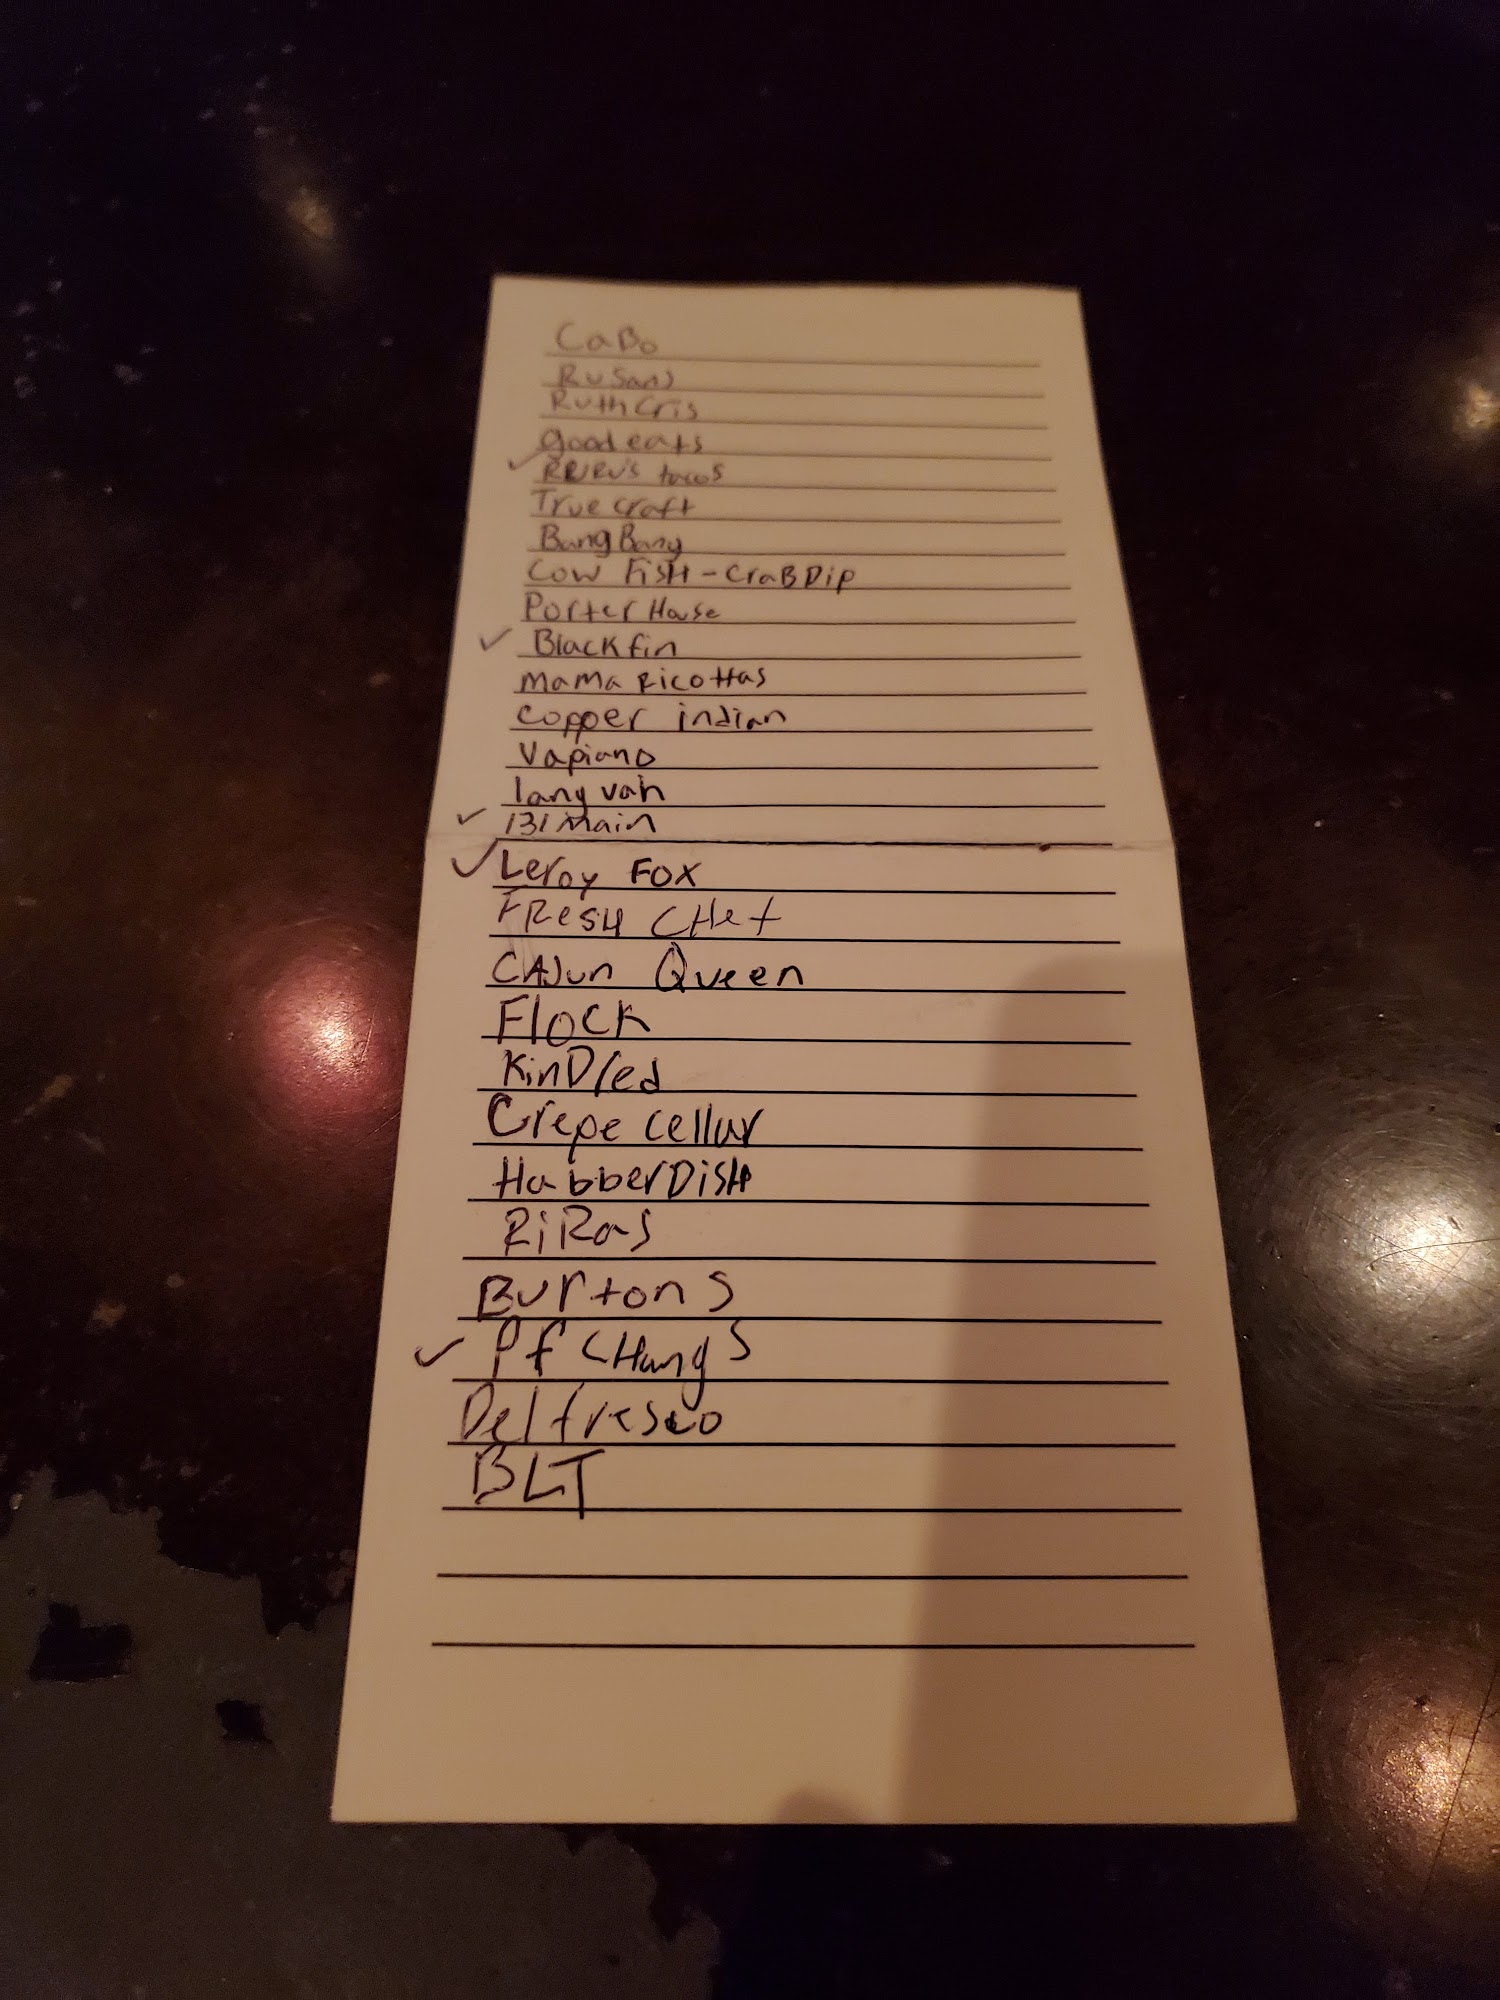 CaBo
RuSans
RuthCris
good eats
✓ RuRu's tacos
True craft
Bang Bang
Cow FisH - CraB Dip
Porter House
✓ Blackfin
MaMa Ricottas
Copper indian
Vapiano
lang van
✓ 131 Main
✓ Leroy FOX
FResH CHef
CAJun Queen
Flock
KinDred
Crepe cellar
HabberDisH
RiRas
Burtons
✓ Pf CHangs
Delfresco
BLT